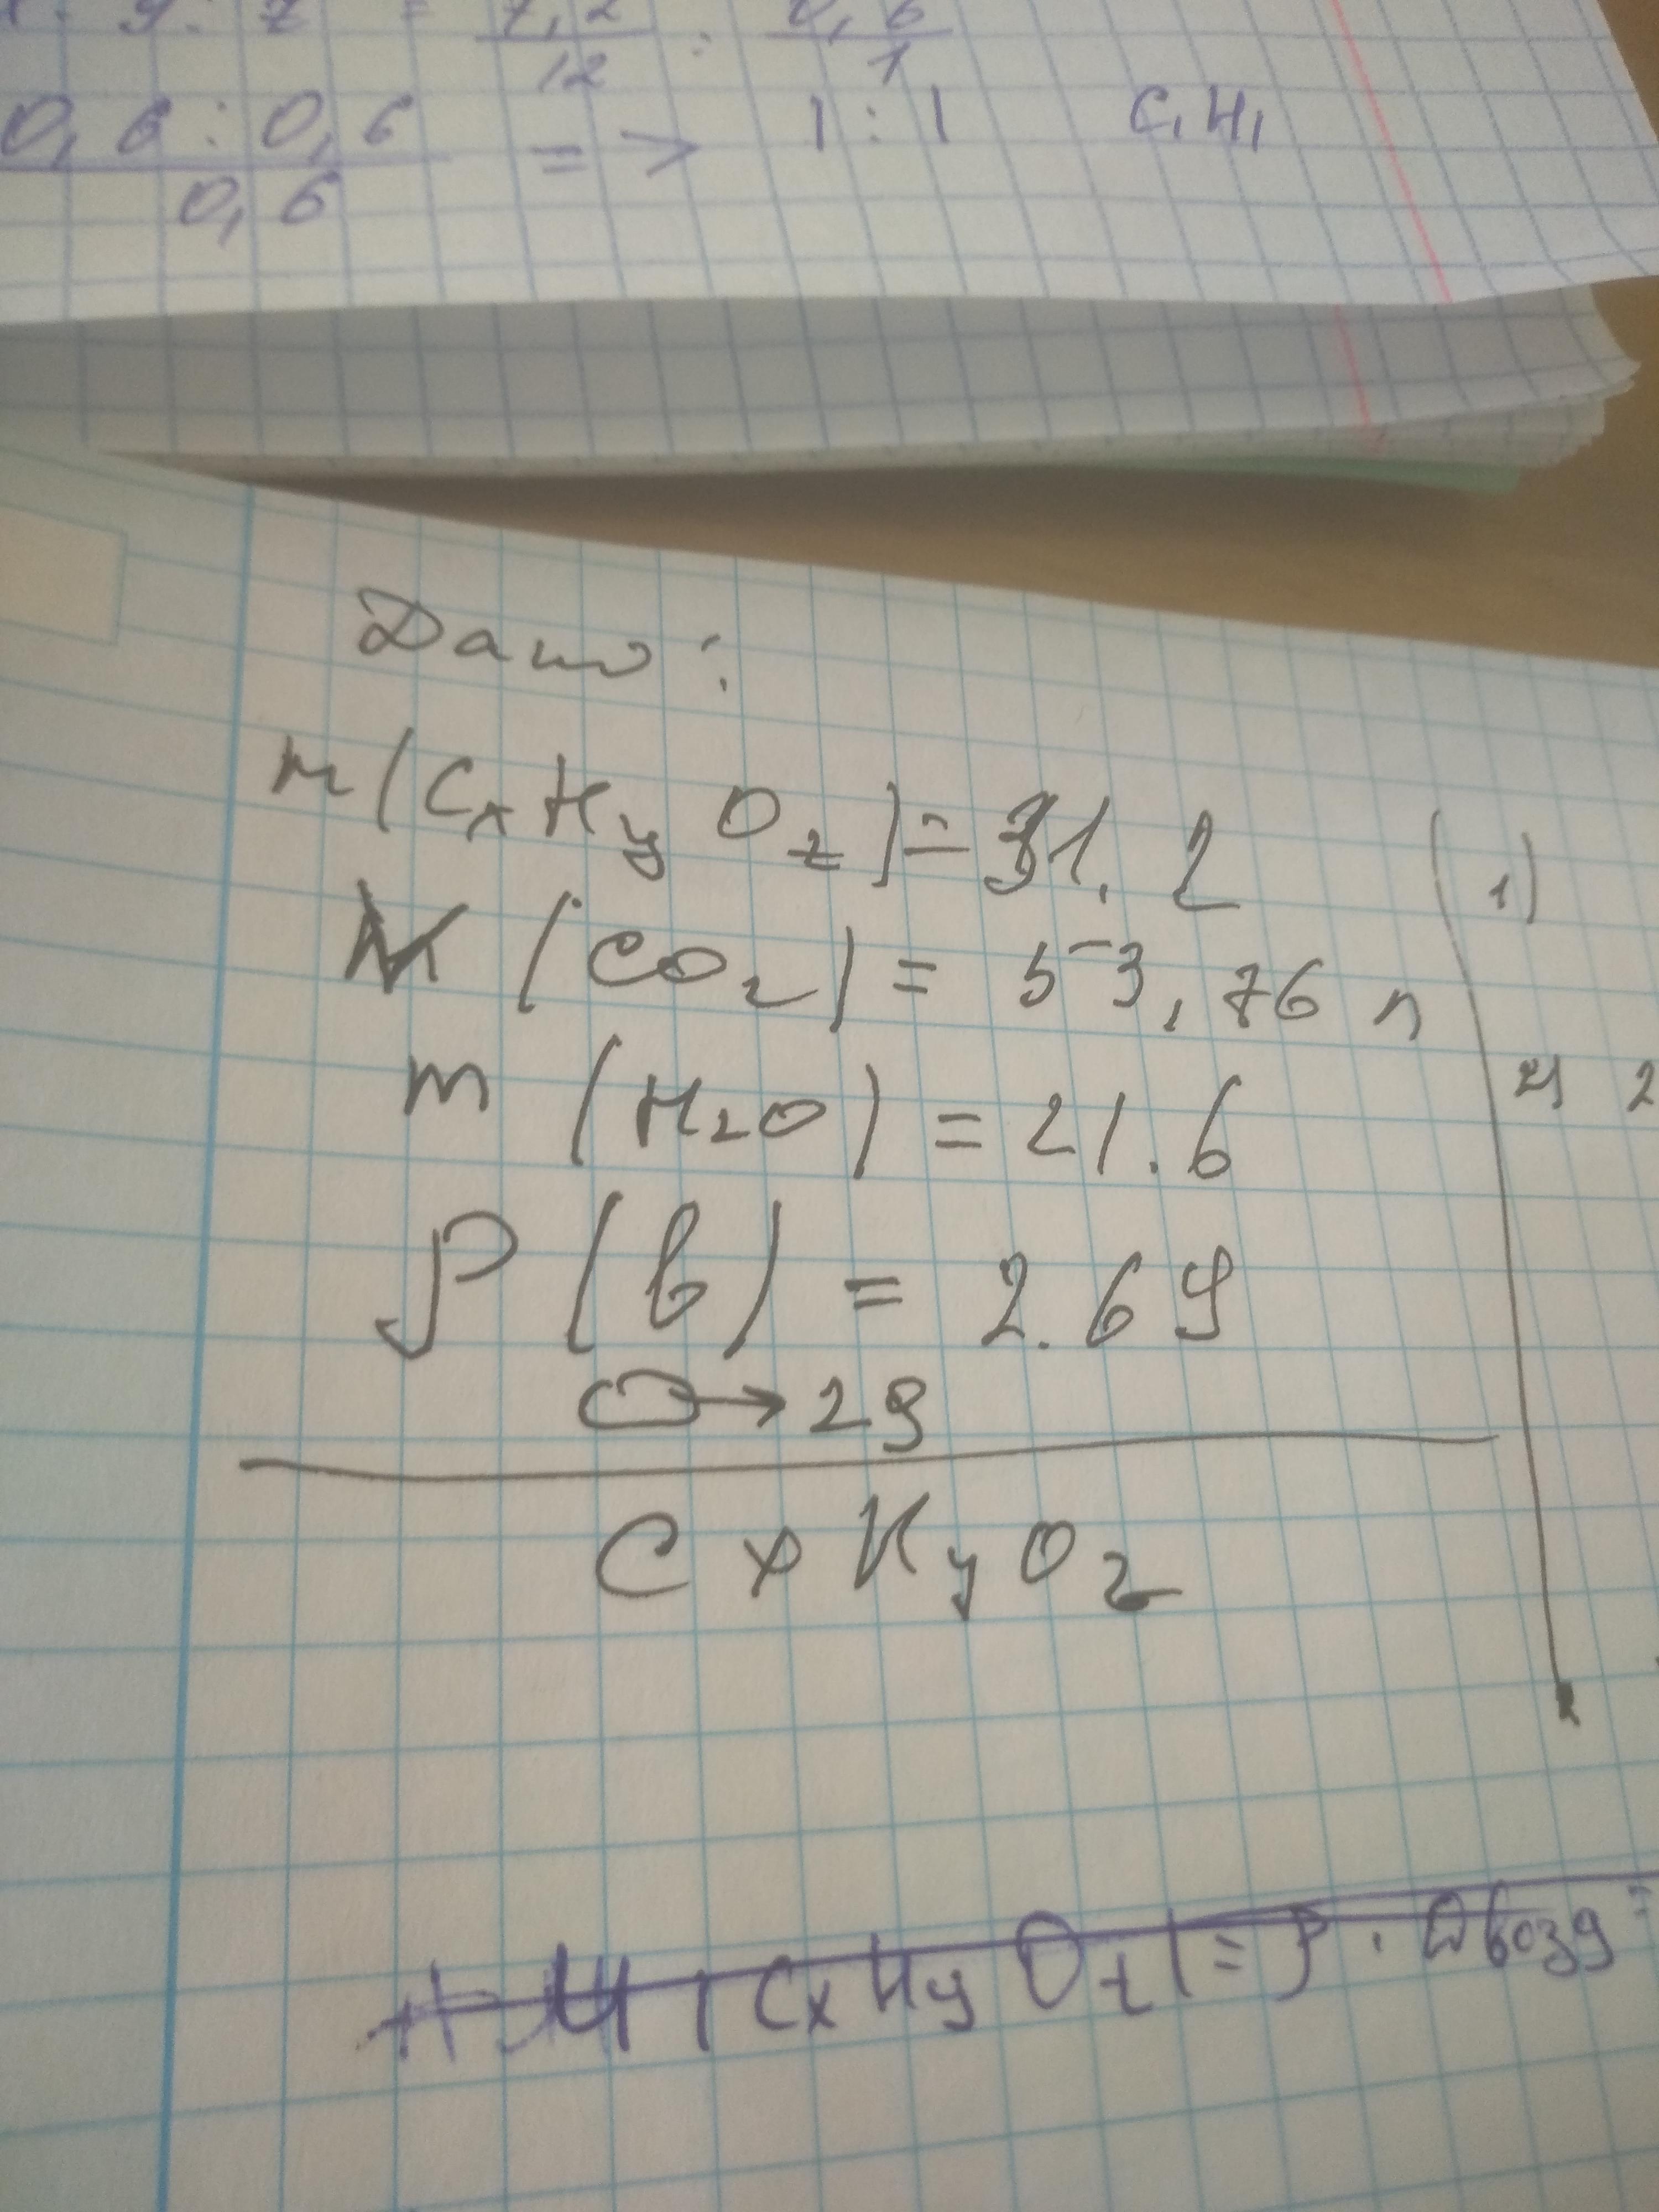 y : z = 7,2/12 : 0,6/1
0,6 : 0,6 / 0,6 => 1 : 1 C₁H₁
Дано:
m (CxHyOz) = 31. 2
(CO₂) = 53,76 л
m (H₂O) = 21.6
ρ (в) = 2.69
→ 29
CxHyO₂
1)
2) 2
M (CxHyOz) = ρ · Dвозд =